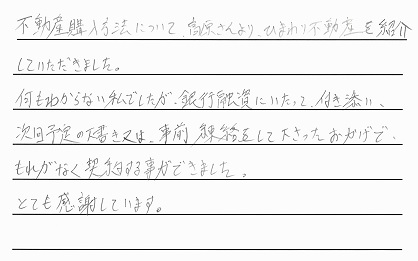 不動産購入方法について、高原さんより、ひまわり不動産を紹介
していただきました。
何もわからない私でしたが、銀行融資にいたって、付き添い、
次回予定の下書き又は、事前 練絡をして下さったおかげで、
もれがなく契約する事ができました。
とても感謝しています。